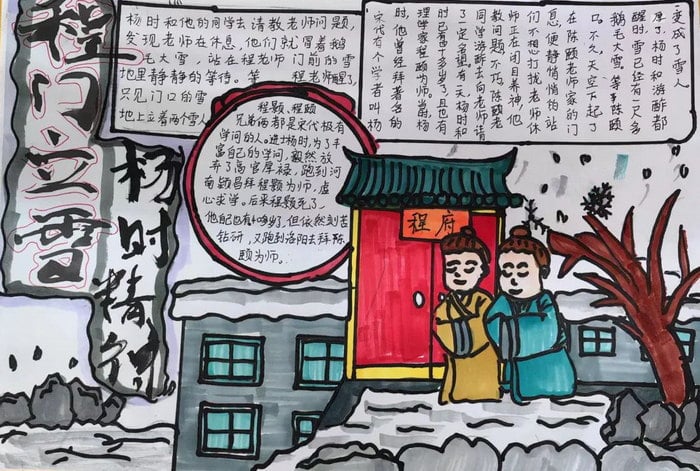 程门立雪
杨时精神
杨时和他的同学去请教老师问题,
发现老师在休息,他们就冒着鹅
毛大雪,站在程老师门前的雪
地里静静的等待。等 程老师醒了,
只见门口的雪
地上立着两个雪人
程颢、程颐
兄弟俩都是宋代极有
学问的人。进杨时,为了丰
富自己的学问,毅然放
弃了高官厚禄,跑到河
南颍昌拜程颢为师,虚
心求学,后来程颢死了,
他自己也有40多岁了,但依然刻苦
钻研,又跑到洛阳去拜陈
颐为师。
宋代有个学者叫杨
时,他曾经拜著名的
理学家程颐为师。当时,杨
时已四十多岁了,且也有
了一定名望。有一天,杨时和
同学游酢去向老师请
教问题,不巧陈颐老
师正在闭目养神,他
们不想打扰老师休
息便静悄悄的站
在陈颐老师家的门
口。不久,天空下起了
鹅毛大雪,等陈颐
醒时,雪已经有一尺多
厚了,杨时和游酢都
变成了雪人
程府